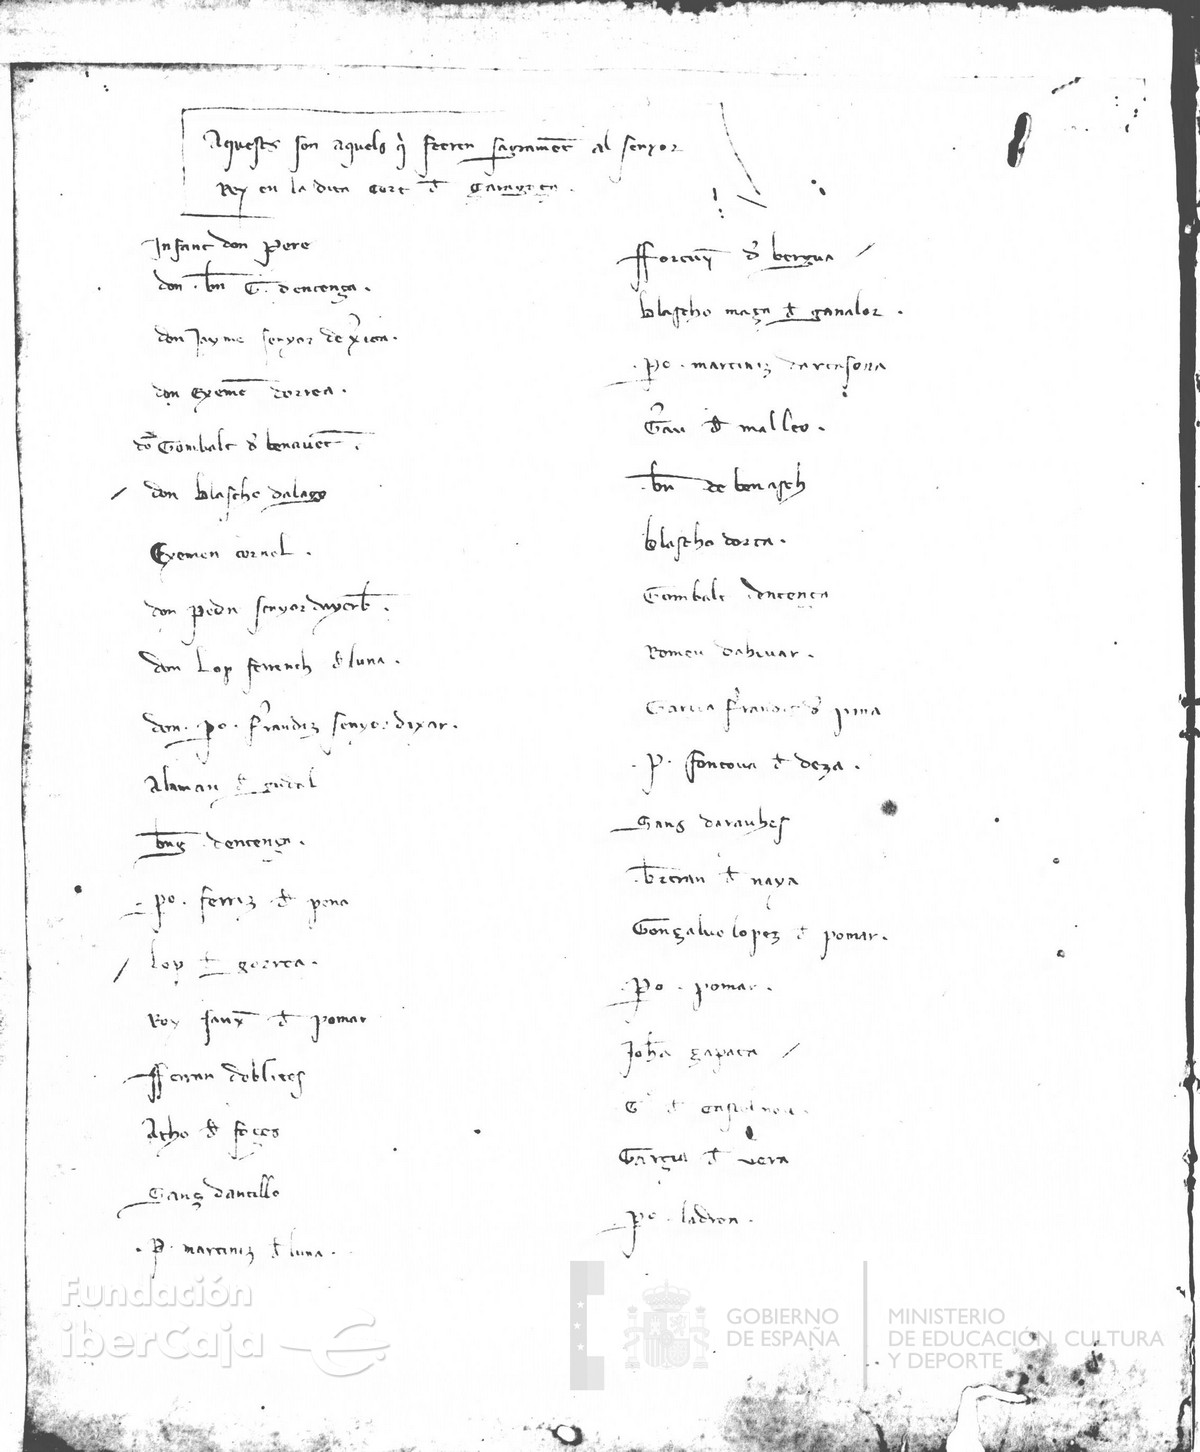 Aquests son aquels q̄ feeren sagrament al senyor
Rey en la dita cort d Caragoça .
Infant don Pere
don . bn̄ G. dentença .
don Jayme senyor de Xerica .
don Exemē dorrea .
dō Gombalt d benauēt .
don blascho dalago
Exemen cornel .
don Pedn senyor dayerb .
don Lop ferrench d luna .
don . po . frandiz senyor dixar .
Alaman d gudal
dentença .
po . ferriz d pena
Lop d gorrea .
Roy sanx d pomar
fferran
Atho d foçes
Sanç dantillo
. P . martiniz d luna .
ffortuy d bergua
blascho maça d ganalor .
. po . martiniz dartasona
Grau d malleo .
. bn̄ de benasch
blascho dorta .
Gombalt dentença
Romeu
Garcia d pina
. P . fontoua d deza .
Sanç daraubes
. btran d naya
Gonçaluo lopez d pomar .
. Po . pomar .
Joha çapata
G d
Garcia d vera
. po . ladron .
Fundación
iberCaja
GOBIERNO
DE ESPAÑA
MINISTERIO
DE EDUCACIÓN, CULTURA
Y DEPORTE